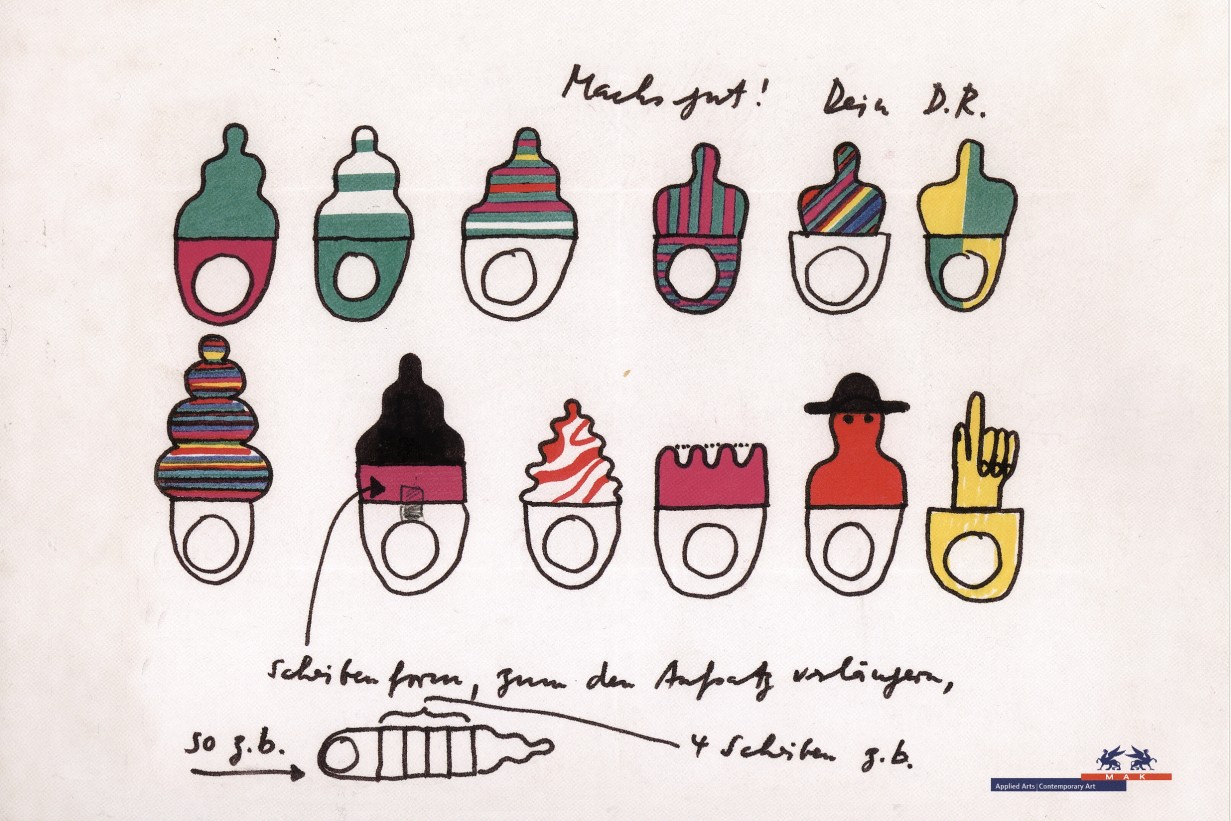 Machs gut! Dein D.R.
Scheibenform, zum den Aufsatz verlängern,
so z.b.
4 Scheiben z.b.
MAK
Applied Arts|Contemporary Art